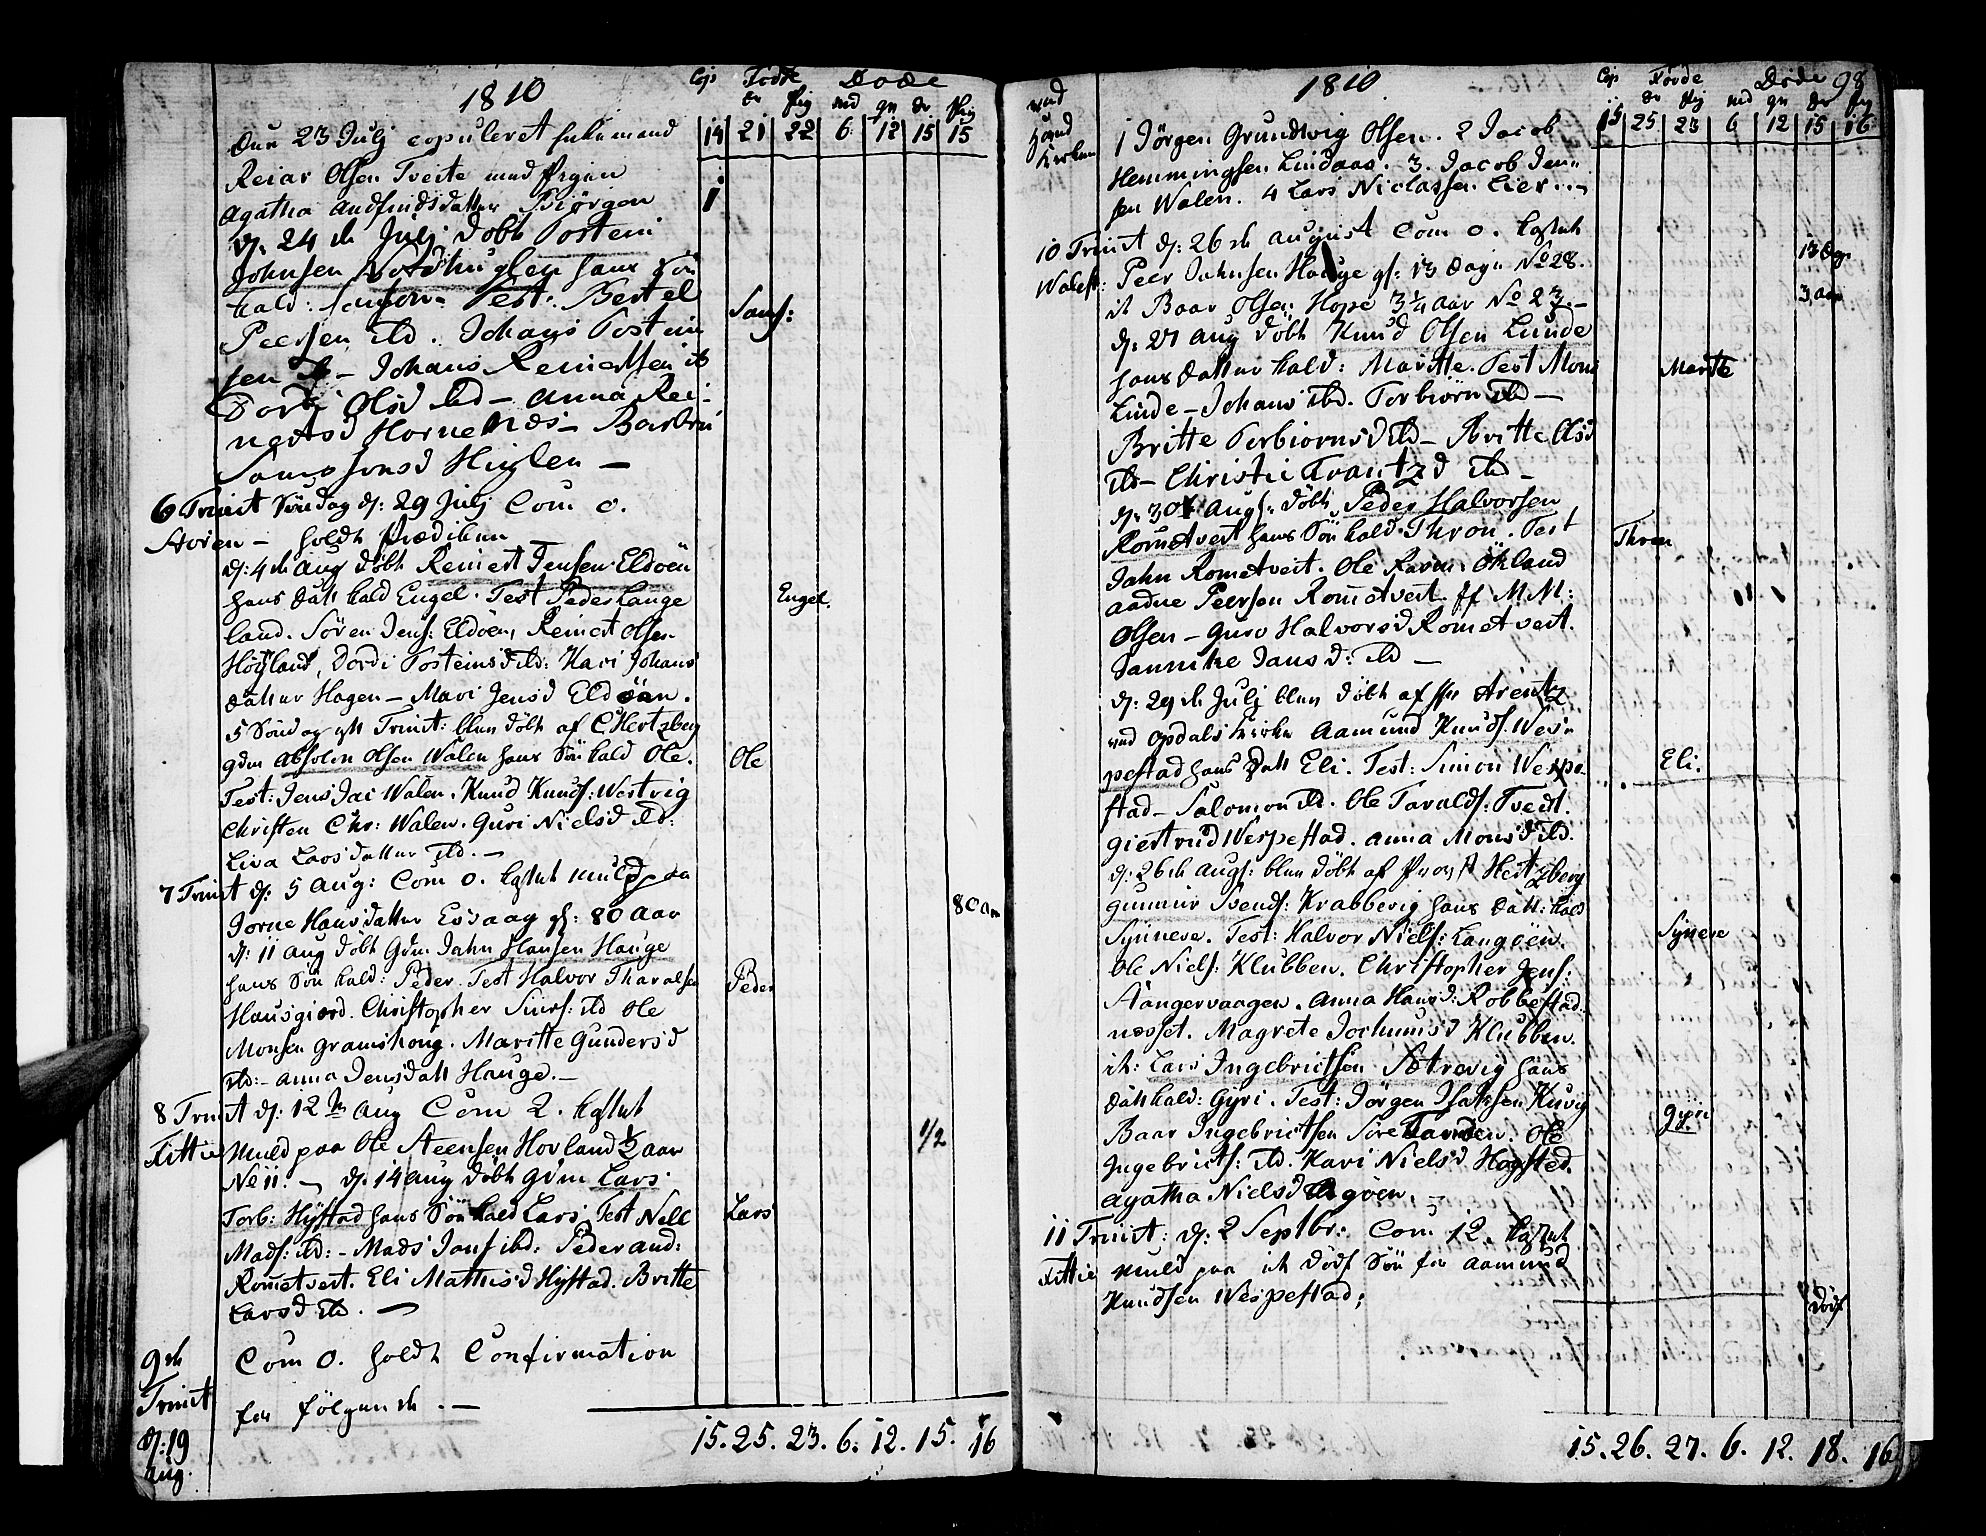 1810
Cop Fødte Døde
dr Pig md qu dr Pig
14 21 22 6 12 15 15
Den 23 Julj copuleret
Reiar Olsen Tveite med Pigen
Agatha Andfindsdatter Biörgen
1
d: 24de Julj döbt Tostein
Johnsen Huglen hans Sön
kald: Test: Bertel
Sams:
Peersen ibd. Johans Tostein
sen ib – Johans Reinertsen ib
Dordi Olsd ibd – Anna Rei:
nertsd Hornenæs – Barbru
Samsonsd Huglen –
6 Trinit Söndag d: 29 Julj Com 0.
Storen – holdt Prædiken
d: 4de Aug döbt Reinert Jensen Eldöen
hans Datt kald Engel. Test Peder Lange
Engel.
land. Sören Jens: Eldöen, Reinert Olsen
Höyland, Dordi Posteinsd ibd: Kari Johans
datter Hagen – Mari Jensd Eldöen.
5 Söndag eft Trinit: blev döbt af C Hertzberg
gdm Absolon Olsen Walen hans Sön kald Ole.
Ole
Test: Jens Jac Walen. Knud Knuds: Westvig
Christen Chr: Walen. Guri Nielsd ibd:
Liva Larsdatter ibd. –
7 Trinit d: 5 Aug: Com 0. kastet muld paa
Jorne Hansdatter Eidsaag gl: 80 Aar
80 Aar
d: 11 Aug döbt Gdm Jahn Hansen Hauge
hans Sön kald: Peder. Test Halvor Tharalsen
Peder
Hausgierd. Christopher Siurs: ibd Ole
Monsen Gramshoug. Maritte Gundersd
ibd: – Anna Jensdatt Hauge. –
8 Trinit d: 12te Aug Com 2. kastet
Fittie muld paa Ole Steensen Hovland ½ aar
1/2
No 11. – d. 14 Aug döbt gdm Lars
Torb: Hÿstad hans Sön kald Lars. Test Nell
Lars
Mads: ibd: – Mads Jons ibd: Peder And:
Rometvert. Eli Mathisd Hÿstad. Britte
Larsd ibd. –
9de Com 0. holdt Confirmation
Trinit for fölgende. –
d: 19
Aug.
15. 25. 23. 6. 12. 15. 16
1810
98
Cop Fødde Døde
dr Pig md qu dr Pig
15 25 23 6 12 15 16
ved
Hoved
Kirken
1 Jörgen Grundwig Olsen. 2 Jacob
Hemmingsen Lindaas. 3. Jacob Jen
sen Walen. 4 Lars Niclassen Lier.
10 Trinit d: 26de August Com 0. kastet
Walest: Peer Jahnsen Hauge gl: 13 Dage No 28.
13 Dage
it Baar Olsen Hope 3¼ Aar No 27. –
3 Aar
d: 27 Aug döbt Knud Olsen Lunde
hans datter kald: Maritte. Test Mons
Maritte
Linde – Johans ibd. Torbiörn ibd –
Britte Torbiornsd ibd – Britte Olsd
ibd – Christie Frantzd ibd –
d: 30 Augs: döbt Peder Halvorsen
Rometvert hans Sön kald Thron. Test
Thron
Jahn Rometveit. Ole Ökland
Aadne Peersen Rometvert. ff M.M:
Olsen – Guro Halvorsd Rometvert.
Jannike Jansd: ibd –
d: 29de Julj blev döbt af Hr Arentz
ved Opdals Kirke Aamund Knuds. Wes
pestad hans Datt Eli. Test: Simon Wespe
Eli.
stad – Salomon ibd. Ole Taralds: Tvedt.
Giertrud Wespestad. Anna Monsd ibd.
d: 26de Augs: blev döbt af Provst Hertzberg
Gunnar Svends: Krabbevig hans datt: kald
Synneve. Test: Halvor Niels: Langöen.
Syneve
Ole Niels: Klubben. Christopher Jens:
Stangervaagen. Anna Hansd: Robbestad
nesset. Magrete Jochumsd Klubben.
it: Lars Ingebrictsen Sætrevig hans
datt kald: Gÿri. Test: Jörgen Isaksen Kuvig
Gyri
Baar Ingebrictsen Söre Tarden. Ole
Ingebricts: ibd. Kari Nielsd Hogsted.
Agatha Nielsd Agöen. –
11 Trinit: d: 2 Septbr: Com 12. kastet
Fittie muld paa it dödf Sön for Aamund
Knudsen Wespestad;
1 dödf
15. 26. 27. 6. 12. 18. 16